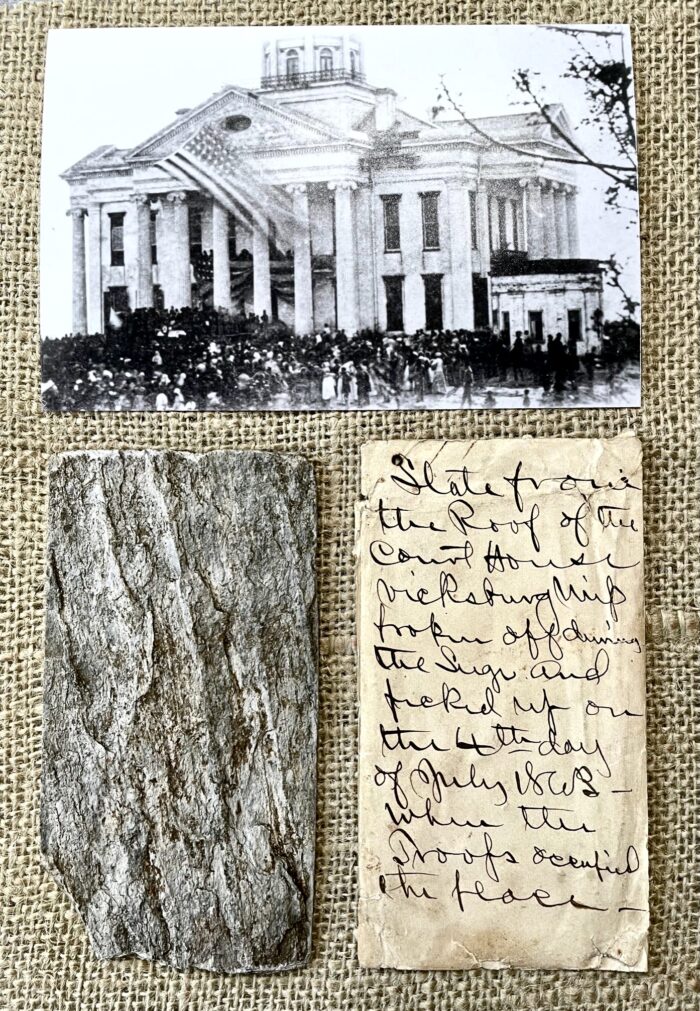 Slate from
the Roof of the
Court House
Vicksburg Miss
broken off during
the Siege and
picked up on
the 4th day
of July 1863 –
when the
Troops occupied
the place –